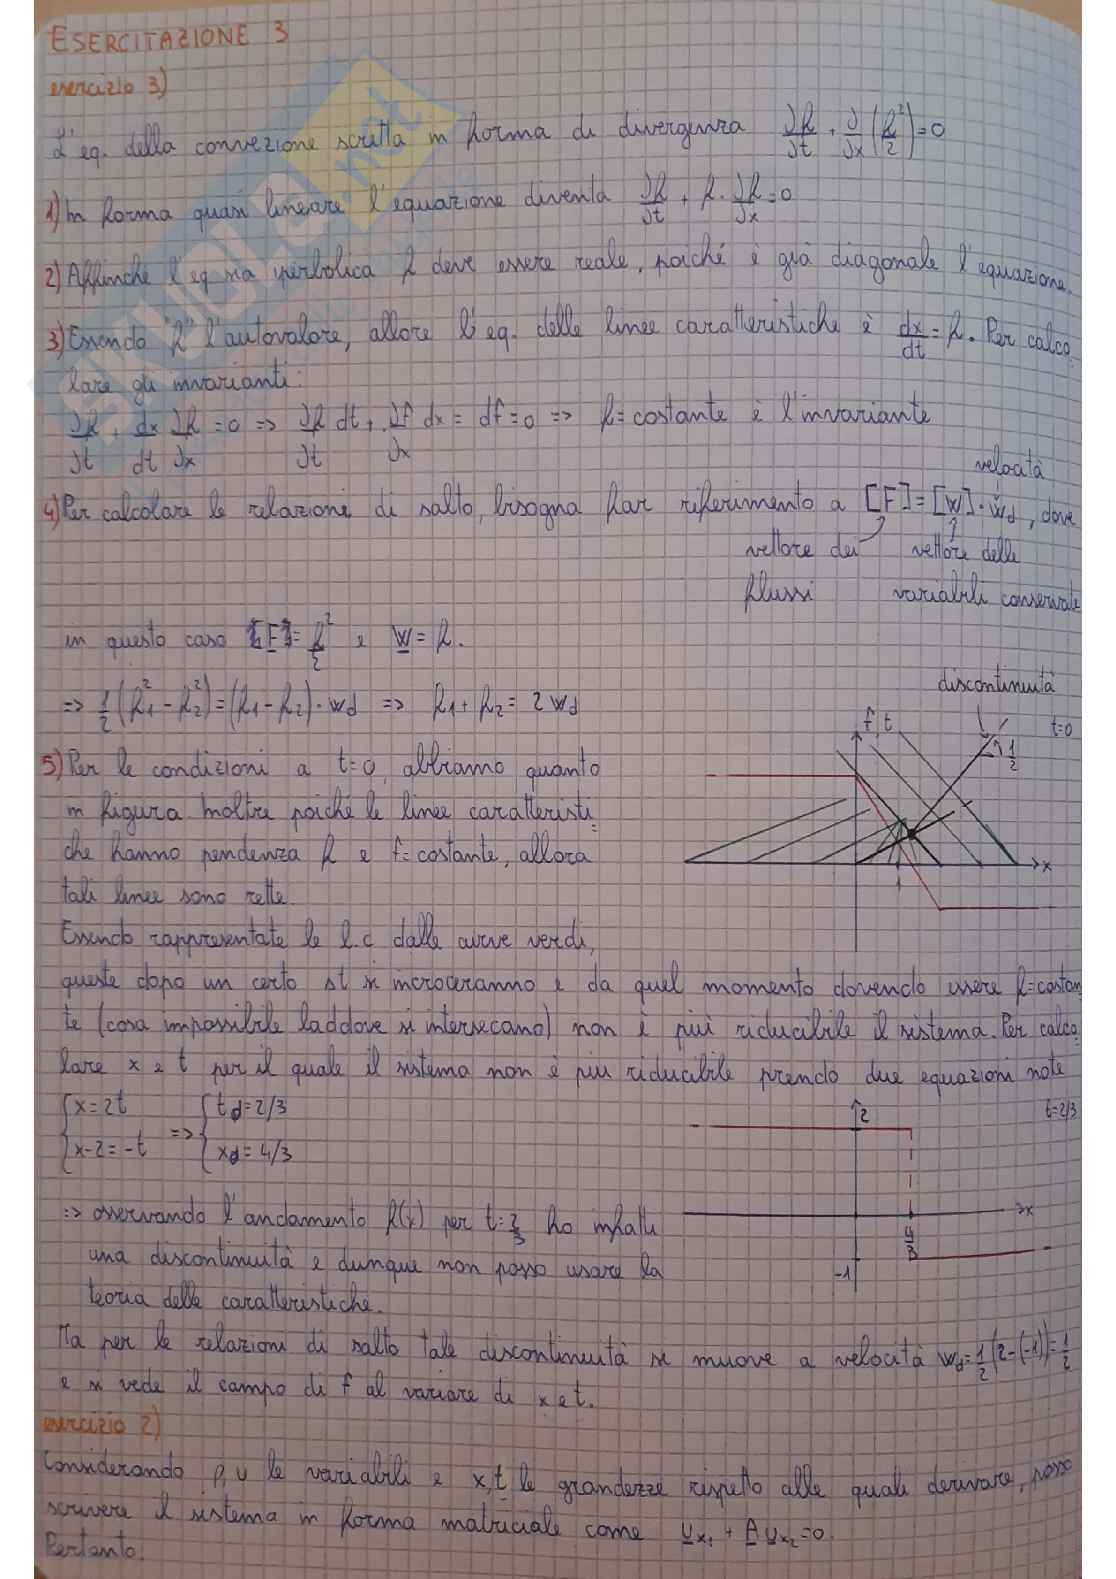 ESERCITAZIONE 3
esercizio 3)
L'eq. della convezione scritta in forma di divergenza ∂f/∂t + ∂/∂x (f²/2) = 0
1) In forma quasi lineare l'equazione diventa ∂f/∂t + f · ∂f/∂x = 0
2) Affinché l'eq sia iperbolica f deve essere reale, poiché è già diagonale l'equazione.
3) Essendo "f" l'autovalore, allora l'eq. delle linee caratteristiche è dx/dt = f. Per calco
lare gli invarianti:
∂f/∂t + dx/dt ∂f/∂x = 0 => ∂f/∂t dt + ∂f/∂x dx = df = 0 => f = costante è l'invariante
velocità
4) Per calcolare le relazioni di salto, bisogna far riferimento a [F] = [w] · wd, dove
vettore dei vettore delle
flussi variabili conservate
in questo caso F = f²/2 e w = f.
=> 1/2 (f₁² - f₂²) = (f₁ - f₂) · wd => f₁ + f₂ = 2 wd
discontinuità
f, t
t=0
1/2
x
1
5) Per le condizioni a t=0 abbiamo quanto
in figura. Inoltre poiché le linee caratteristi
che hanno pendenza f e f=costante, allora
tali linee sono rette.
Essendo rappresentate le l.c dalle curve verdi,
queste dopo un certo st si incroceranno e da quel momento dovendo essere f=costan
te (cosa impossibile laddove si intersecano) non è più riducibile il sistema. Per calco
lare x e t per il quale il sistema non è più riducibile prendo due equazioni note
{ x = 2t
x-2 = -t => { td = 2/3
xd = 4/3
2
t=2/3
x
4/3
-1
=> osservando l'andamento f(x) per t=2/3 ho infatti
una discontinuità e dunque non posso usare la
teoria delle caratteristiche.
Ma per le relazioni di salto tale discontinuità si muove a velocità wd = 1/2 (2-(-1)) = 1/2
e si vede il campo di f al variare di x e t.
esercizio 2)
Considerando ρ, u le variabili e x, t le grandezze rispetto alle quali derivare, posso
scrivere il sistema in forma matriciale come u x₁ + A u x₂ = 0.
Pertanto:
SKUOLA.net